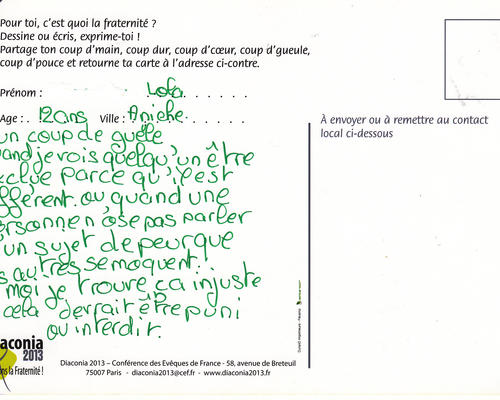 Pour toi, c'est quoi la fraternité ?
Dessine ou écris, exprime-toi !
Partage ton coup d'main, coup dur, coup d'cœur, coup d'gueule,
coup d'pouce et retourne ta carte à l'adresse ci-contre.
Prénom : Lola. . . . . .
Age : . 12ans Ville : Aniche. . . . . .
un coup de guele
and je vois quelqu'un être
clue parce qu'il est
fférent. ou quand une
ersonne n'ose pas parler
'un sujet de peur que
s autres se moquent. .
moi je trouve ça injuste
cela derrait être puni
ou interdit.
À envoyer ou à remettre au contact
local ci-dessous
aconia
2013
ns la Fraternité !
Diaconia 2013 – Conférence des Evêques de France - 58, avenue de Breteuil
75007 Paris - diaconia2013@cef.fr - www.diaconia2013.fr